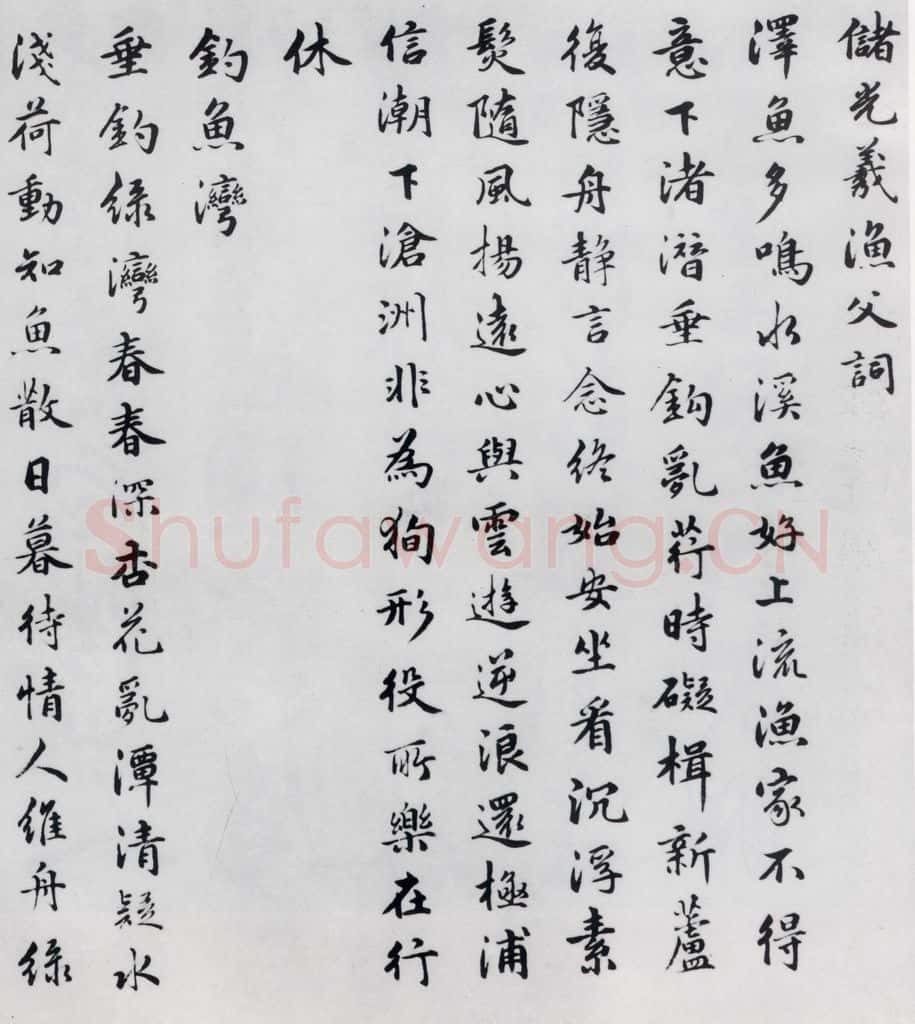 儲光羲漁父詞
澤魚多鳴水溪魚好上流漁家不得
意下渚潛垂鉤亂荇時礙楫新蘆
復隱舟靜言念終始安坐看沉浮素
髮隨風揚遠心與雲遊逆浪還極浦
信潮下滄洲非為狥形役所樂在行
休
釣魚灣
垂釣綠灣春春深杏花亂潭清疑水
淺荷動知魚散日暮待情人維舟綠
Shufawang.CN